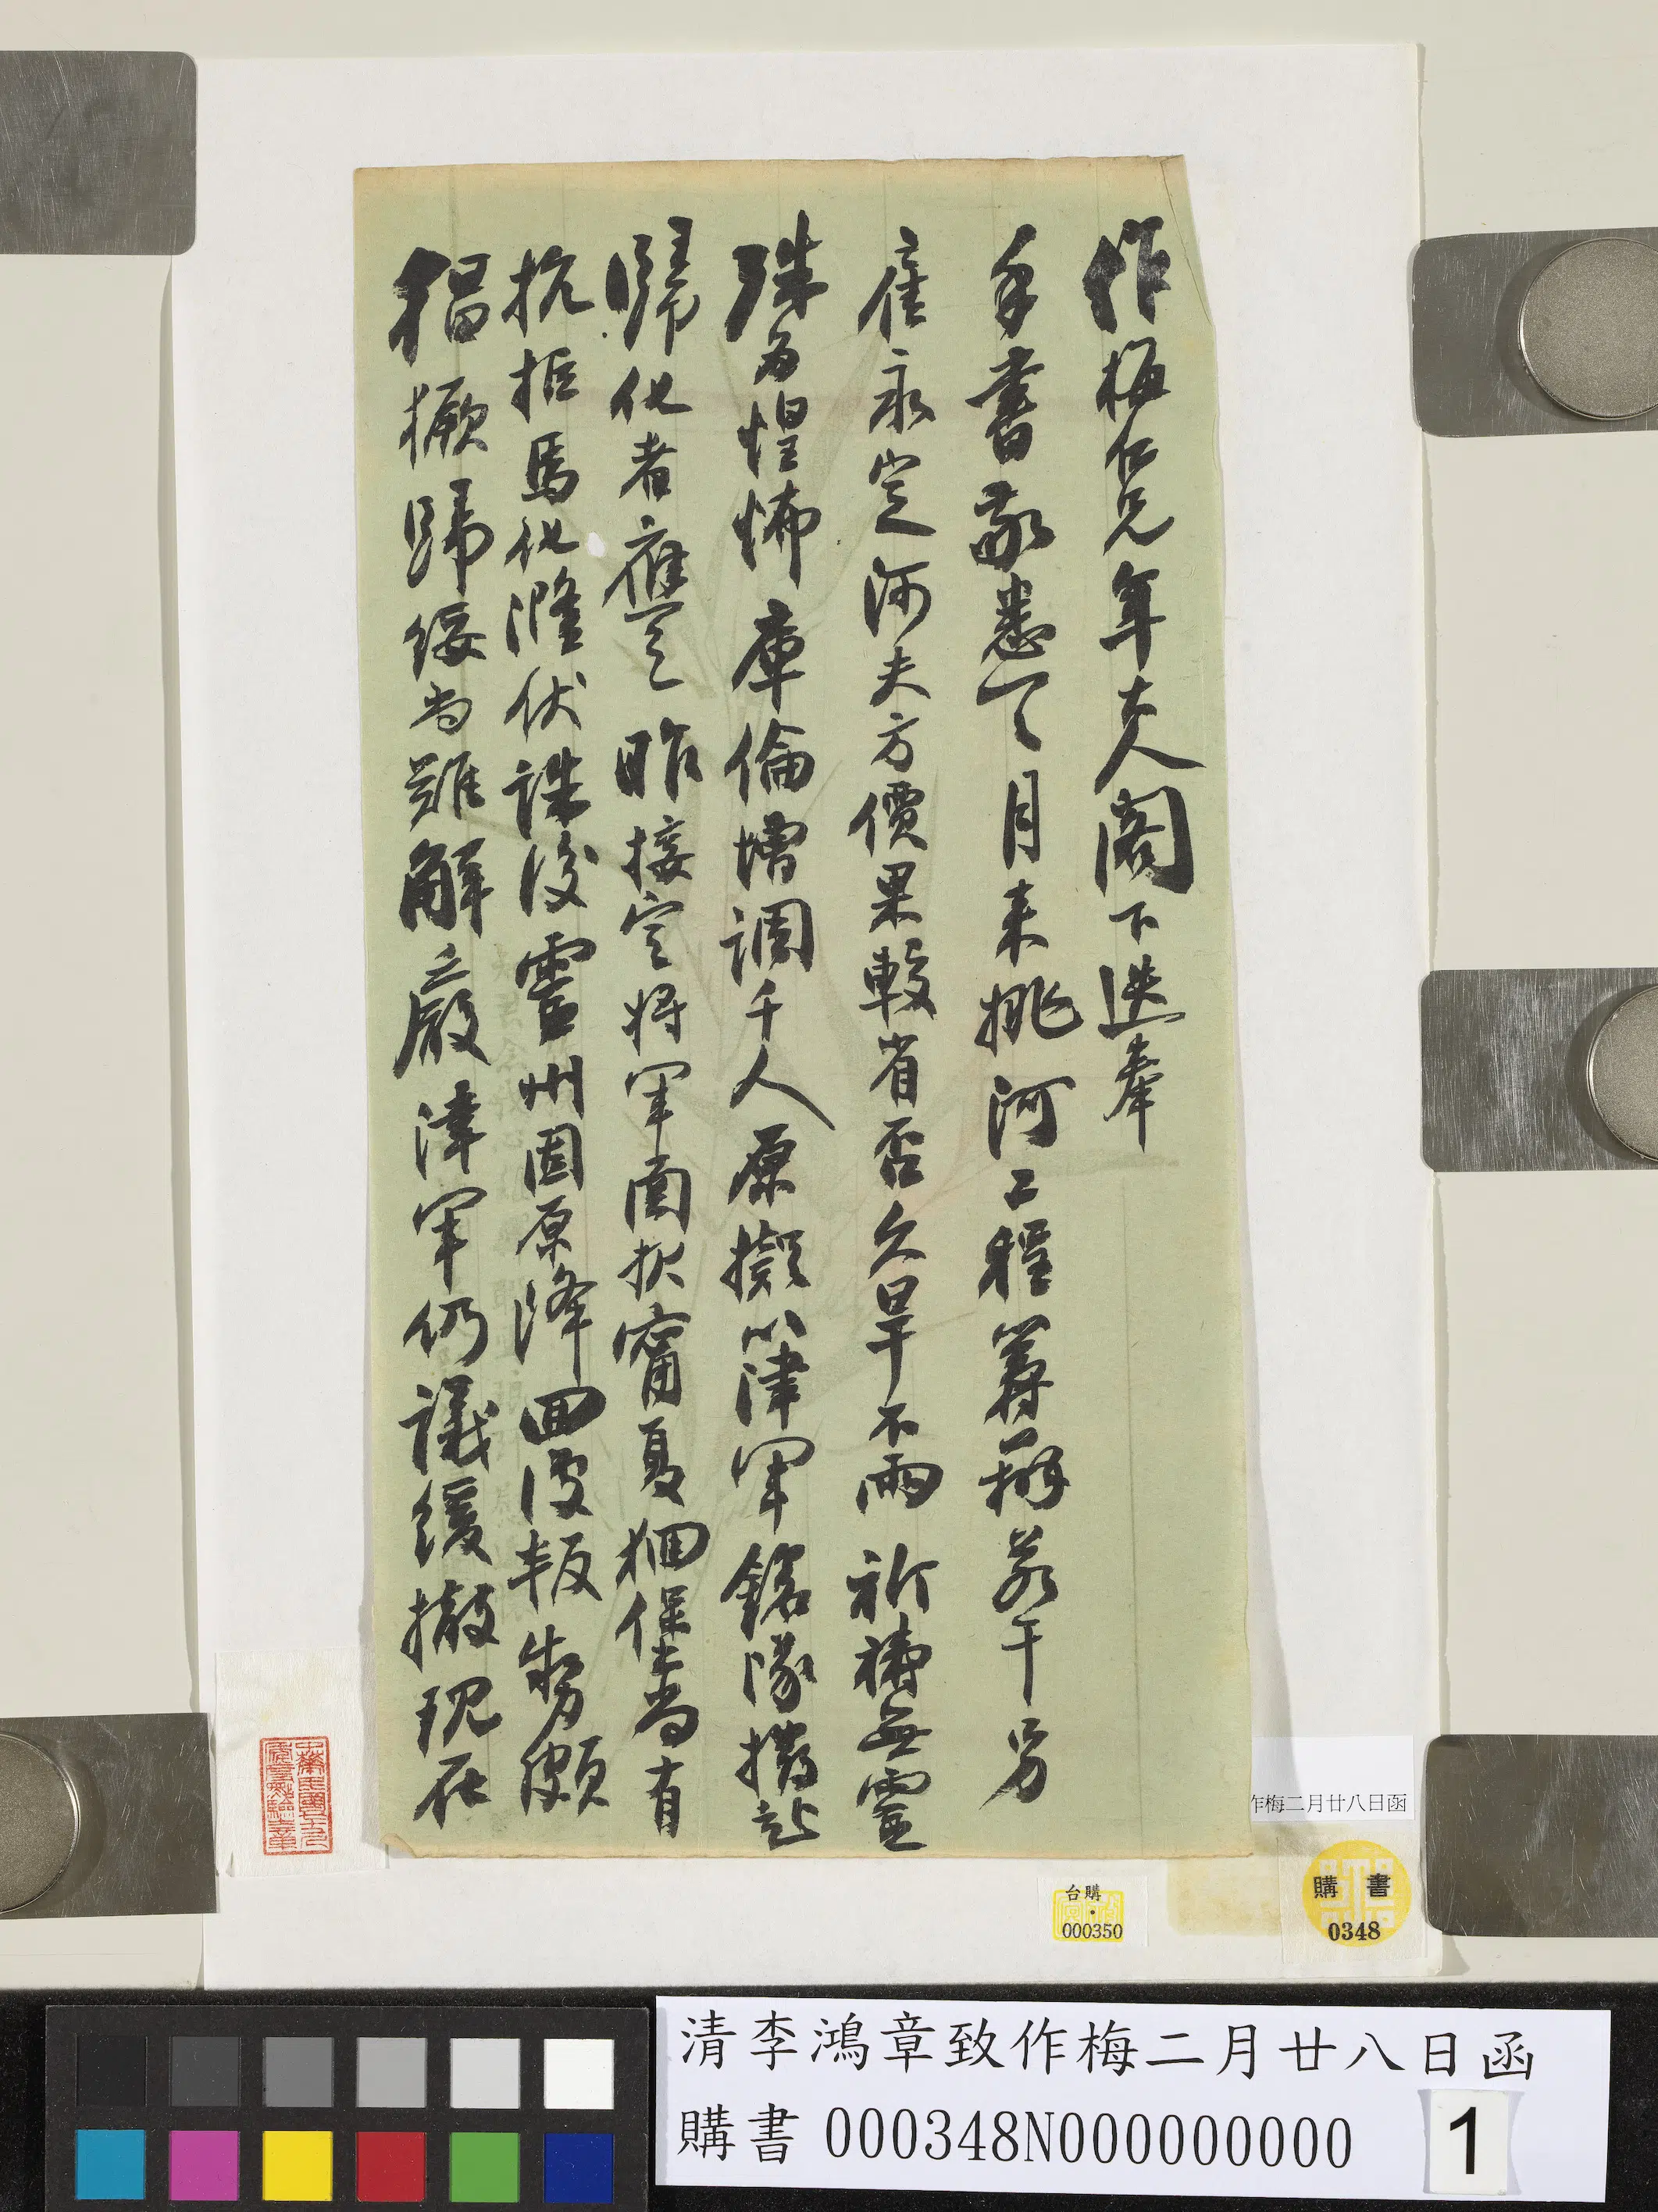 作梅仁兄年大人閣下迭奉
手書敬悉一一月來挑河工程籌辦若干另
雇永定河夫方價果較省否久旱不雨祈禱無靈
殊為惶怖庫倫增調千人原擬以津軍銘隊撥赴
歸化者應之昨接定將軍函狀甯夏捆保尚有
抗拒馬化漋伏誅後靈州固原降回復叛勢頗
猖撅歸綏尚難解嚴津軍仍議緩撤現在
作梅二月廿八日函
購書
0348
台購
000350
清李鴻章致作梅二月廿八日函
購書 000348N000000000 1